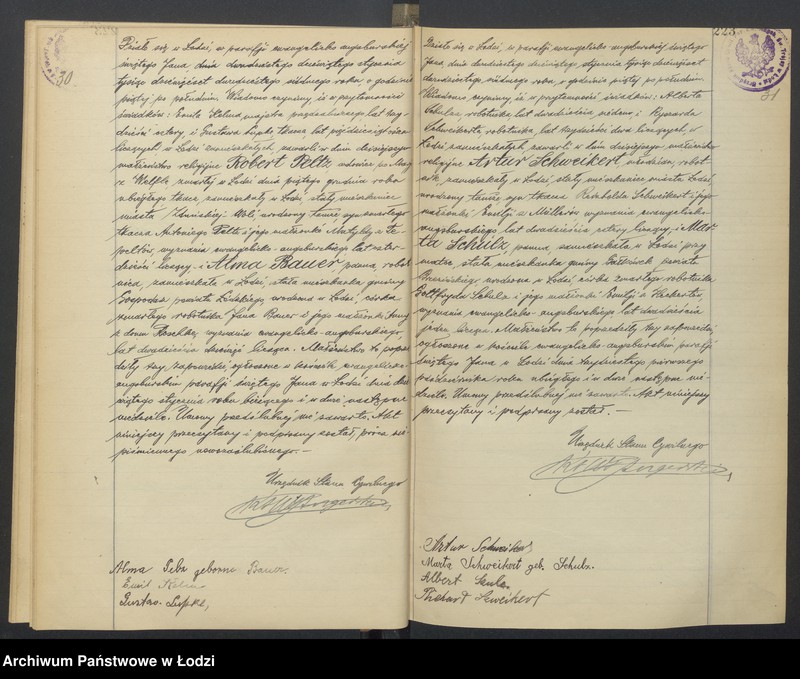 30
Działo się w Łodzi, w parafji ewangelicko-augsburskiej
świętego Jana dnia dwudziestego dziewiątego stycznia
tysiąc dziewięćset dwudziestego siódmego roku, o godzinie
piątej po południu. Wiadomo czynimy, iż w przytomności
świadków: Emila majstra przędzalnego, lat trzy-
dzieści cztery, i Gustawa Lupke, tkacza, lat pięćdziesiąt
liczących, w Łodzi zamieszkałych, zawarli w dniu dzisiejszym
małżeństwo religijne Robert Peltz, wdowiec po
z Welfle zmarłej w Łodzi dnia piątego grudnia roku
ubiegłego tkacz zamieszkały w Łodzi, stały mieszkaniec
miasta Zduńskiej Woli urodzony tamże, syn zmarłego
tkacza Antoniego Peltz i jego małżonki Matyldy z Te-
wyznania ewangelicko-augsburskiego lat czter-
dzieści liczący – i Alma Bauer, panna, robot-
nica, zamieszkała w Łodzi, stała mieszkanka gminy
Gospodarz powiatu Łódzkiego, urodzona w Łodzi, córka
zmarłego robotnika Jana Bauer i jego małżonki Anny
z domu wyznania ewangelicko-augsburskiego,
lat dwadzieścia dziewięć licząca. Małżeństwo to poprze-
dziły trzy zapowiedzi, ogłoszone w kościele ewangelicko-
augsburskim parafji świętego Jana w Łodzi dnia dzie-
wiątego stycznia roku bieżącego i w dwie następne
niedziele. Umowy przedślubnej nie zawarto. Akt
niniejszy przeczytany i podpisany został, prócz nie-
piśmiennego nowozaślubionego. –
Urzędnik Stanu Cywilnego
Alma Pelz geborene Bauer.
Emil
Gustav Lupke,
223
31
Działo się w Łodzi, w parafji ewangelicko-augsburskiej świętego
Jana, dnia dwudziestego dziewiątego stycznia tysiąc dziewięćset
dwudziestego siódmego roku, o godzinie piątej po południu.
Wiadomo czynimy, iż w przytomności świadków: Alberta
robotnika, lat dwadzieścia siedem, i Ryszarda
Schweikerta robotnika, lat trzydzieści dwa liczących, w
Łodzi zamieszkałych zawarli w dniu dzisiejszym małżeństwo
religijne Artur Schweikert, młodzian, robot-
nik, zamieszkały w Łodzi, stały mieszkaniec miasta Łodzi,
urodzony tamże, syn tkacza Reinholda Schweikert i jego
małżonki Emilji z Müllerów wyznania ewangelicko-
augsburskiego, lat dwadzieścia cztery liczący, – i Mar-
ta Schulz, panna, zamieszkała w Łodzi przy
matce, stała mieszkanka gminy Gałkówek powiatu
Brzezińskiego urodzona w Łodzi, córka zmarłego robotnika
Gottfryda Schulz i jego małżonki Emilji z
wyznania ewangelicko-augsburskiego lat dwadzieścia
jeden licząca. Małżeństwo to poprzedziły trzy zapowiedzi
ogłoszone w kościele ewangelicko-augsburskim parafji
świętego Jana w Łodzi dnia trzydziestego pierwszego
października roku ubiegłego i w dwie następne nie-
dziele. Umowy przedślubnej nie zawarto. Akt niniejszy
przeczytany i podpisany został. –
Urzędnik Stanu Cywilnego
Artur Schweikert
Marta Schweikert geb. Schulz.
Albert
Richard Schweikert
Archiwum Państwowe w Łodzi